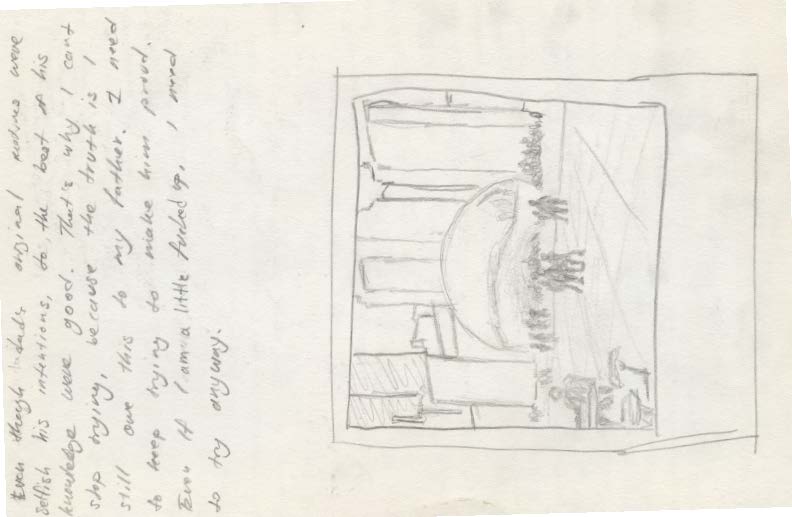 Even though dad's original motives were
selfish his intentions, to the best of his
knowledge were good. That's why I cant
stop trying, because the truth is I
still owe this to my father. I need
to keep trying to make him proud.
Even if I am a little fucked up, I need
to try anyway.